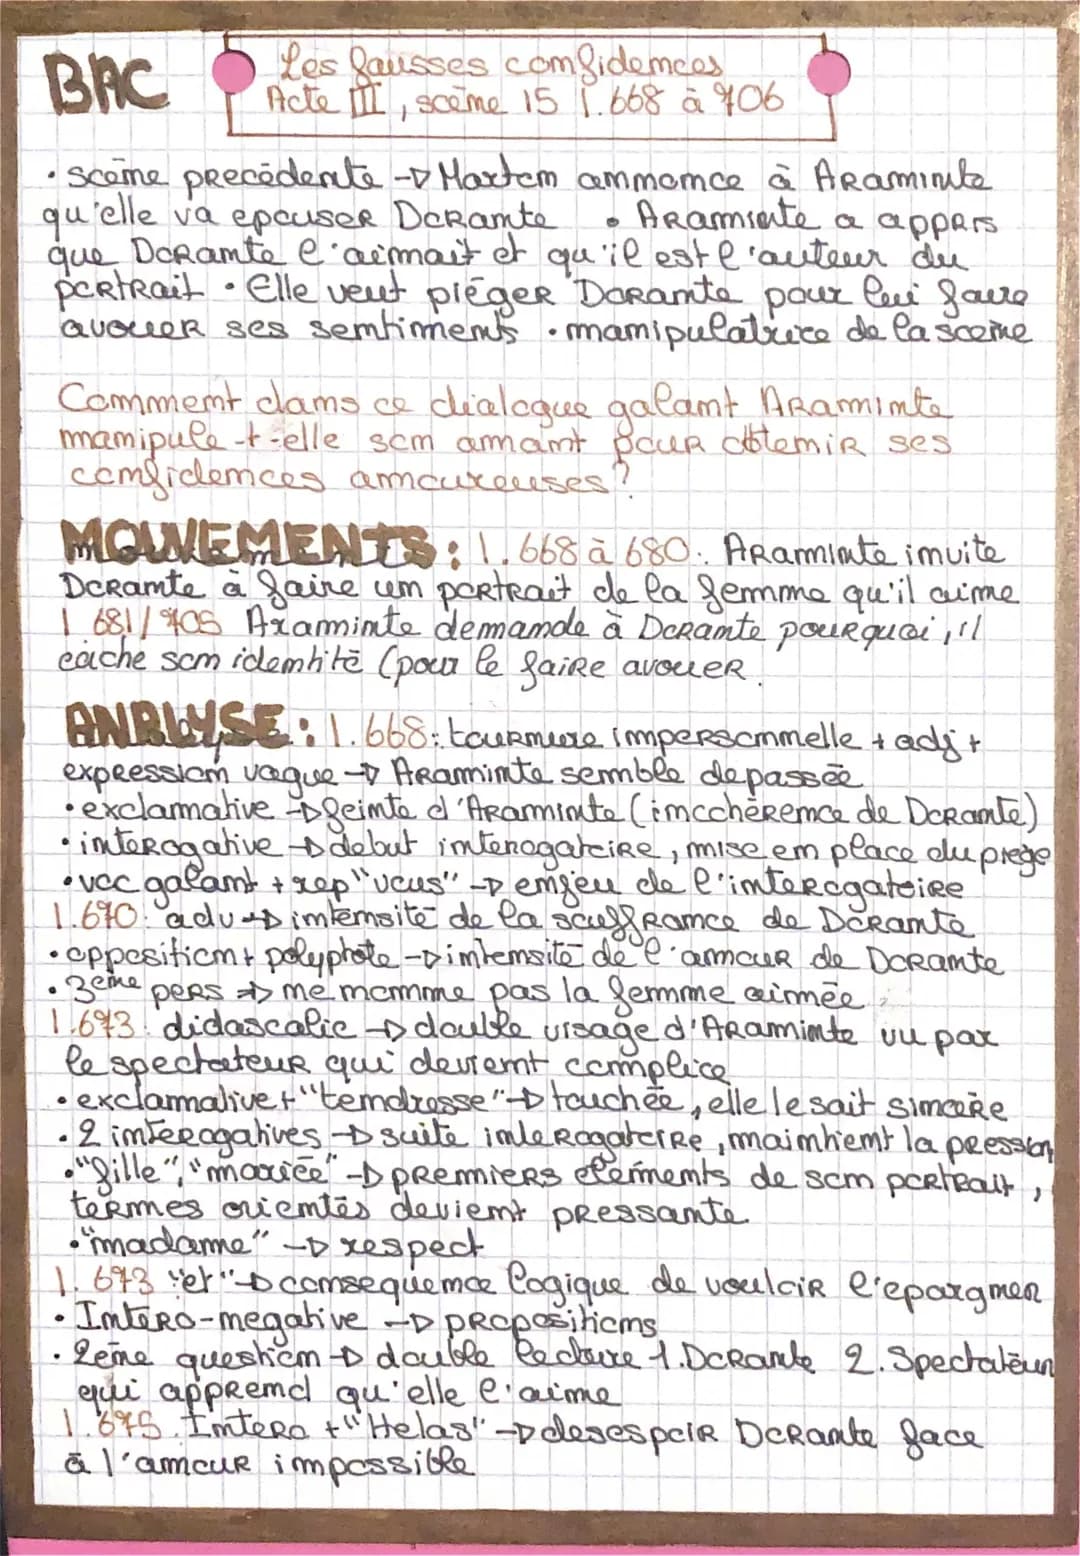 BAC
Les fausses confidences
Acte III, scène 15 l.668 à 706
• scène précédente → Marton annonce à Araminte
qu'elle va epouser Dorante • Araminte a appris
que Dorante l'aimait et qu'il est l'auteur du
portrait • Elle veut piéger Dorante pour lui faire
avouer ses sentiments • manipulatrice de la scène
Comment dans ce dialogue galant Araminte
manipule-t-elle son amant pour obtenir ses
confidences amoureuses?
MOUVEMENTS: l.668 à 680: Araminte invite
Dorante à faire un portrait de la femme qu'il aime
l 681/705 Araminte demande à Dorante pourquoi, il
cache son identité (pour le faire avouer.
ANALYSE: l.668: tournure impersonnelle + adj +
expression vague → Araminte semble depassée
• exclamative → feinte d'Araminte (incohérence de Dorante)
• interogative → debut interogatoire, mise en place du piege
• voc galant + rep "vous" → enjeu de l'interogatoire
l.670: adv → intensité de la souffrance de Dorante
• opposition + polyptote → intensité de l'amour de Dorante
• 3ème pers ⇒ ne nomme pas la femme aimée
l.673: didascalie → double visage d'Araminte vu par
le spectateur qui devient complice
• exclamative + "tendresse" → touchée, elle le sait sincère
• 2 interogatives → suite interogatoire, maintient la pression
• "fille", "mariée" → premiers éléments de son portrait,
termes orientés devient pressante
• "madame" → respect
l. 673 "et" → consequence logique de vouloir l'epargner
• Intero-negative → propositions
• 2ème question → double lecture 1.Dorante 2.Spectateur
qui apprend qu'elle l'aime
l.675. Intero + "Helas" → desespoir Dorante face
à l'amour impossible